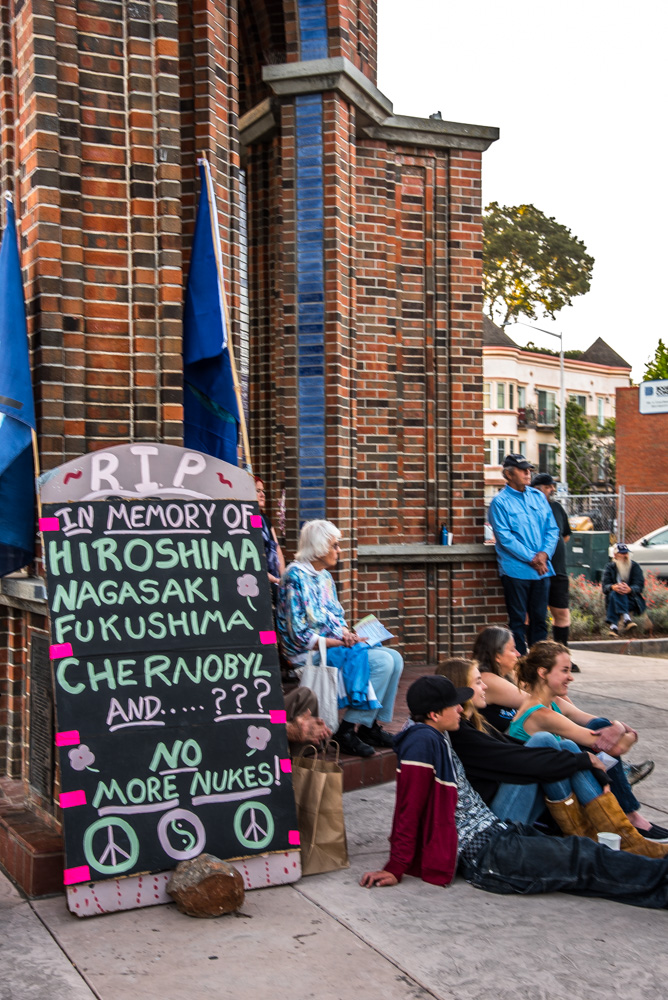 R.I.P
IN MEMORY OF
HIROSHIMA
NAGASAKI
FUKUSHIMA
CHERNOBYL
AND.....???
NO
MORE NUKES!